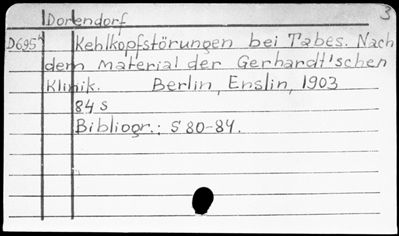 Dorendorf 3
D695k Kehlkopfstörungen bei Tabes. Nach
dem Material der Gerhardt'schen
Klinik. Berlin, Enslin, 1903
84 s
Bibliogr.: S 80-84.